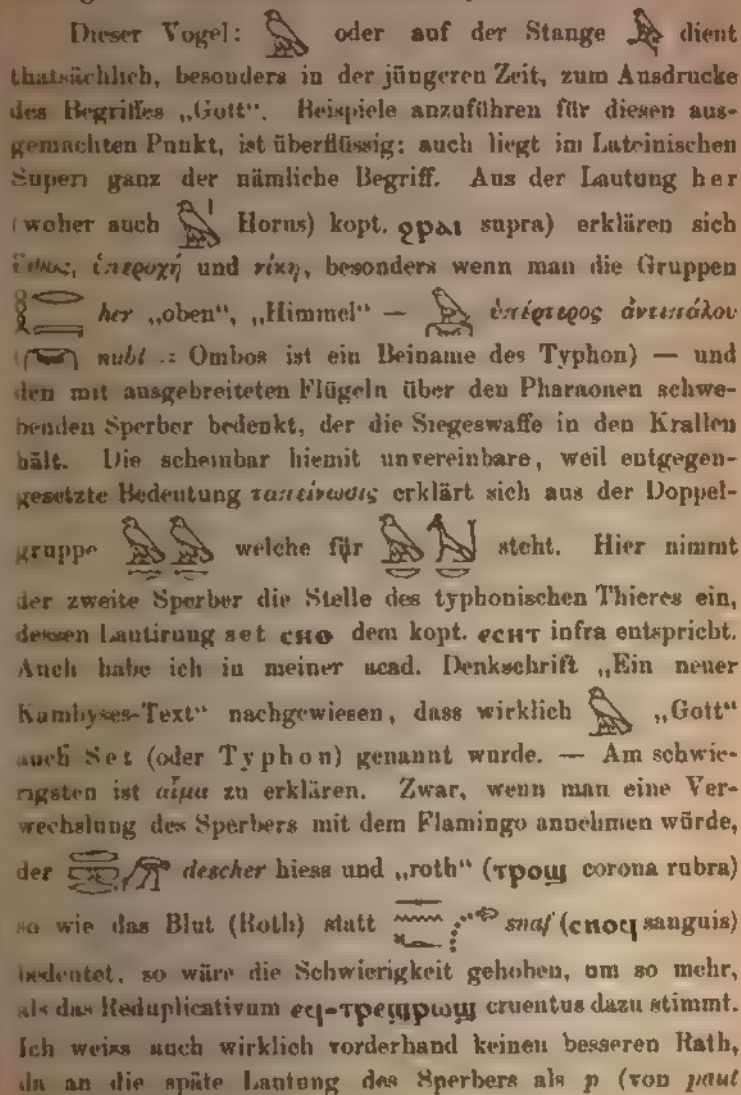 Dieser Vogel: 𓅃 oder auf der Stange 𓅆 dient
thatsächlich, besonders in der jüngeren Zeit, zum Ausdrucke
des Begriffes „Gott“. Beispiele anzuführen für diesen aus-
gemachten Punkt, ist überflüssig: auch liegt im Lateinischen
Superi ganz der nämliche Begriff. Aus der Lautung her
(woher auch Horus) kopt. ϩⲣⲁⲓ supra) erklären sich
ὕψος, ὑπεροχή und νίκη, besonders wenn man die Gruppen
her „oben“, „Himmel“ — ὑπέρτερος ἀντιπάλου
( nubi = Ombos ist ein Beiname des Typhon) — und
den mit ausgebreiteten Flügeln über den Pharaonen schwe-
benden Sperber bedenkt, der die Siegeswaffe in den Krallen
hält. Die scheinbar hiemit unvereinbare, weil entgegen-
gesetzte Bedeutung ταπείνωσις erklärt sich aus der Doppel-
gruppe welche für steht. Hier nimmt
der zweite Sperber die Stelle des typhonischen Thieres ein,
dessen Lautirung set ⲥⲏⲑ dem kopt. ⲉⲥⲏⲧ infra entspricht.
Auch habe ich in meiner acad. Denkschrift „Ein neuer
Kambyses-Text“ nachgewiesen, dass wirklich 𓅃 „Gott“
auch Set (oder Typhon) genannt wurde. — Am schwie-
rigsten ist αἷμα zu erklären. Zwar, wenn man eine Ver-
wechslung des Sperbers mit dem Flamingo annehmen würde,
der descher hiess und „roth“ (ⲧⲣⲟϣ corona rubra)
so wie das Blut (Roth) statt snaf (ⲥⲛⲟϥ sanguis)
bedeutet, so wäre die Schwierigkeit gehoben, um so mehr,
als das Reduplicativum ⲉϥ-ⲧⲣⲉϣⲣⲱϣ cruentus dazu stimmt.
Ich weiss auch wirklich vorderhand keinen besseren Rath,
da an die späte Lautung des Sperbers als p (von paut